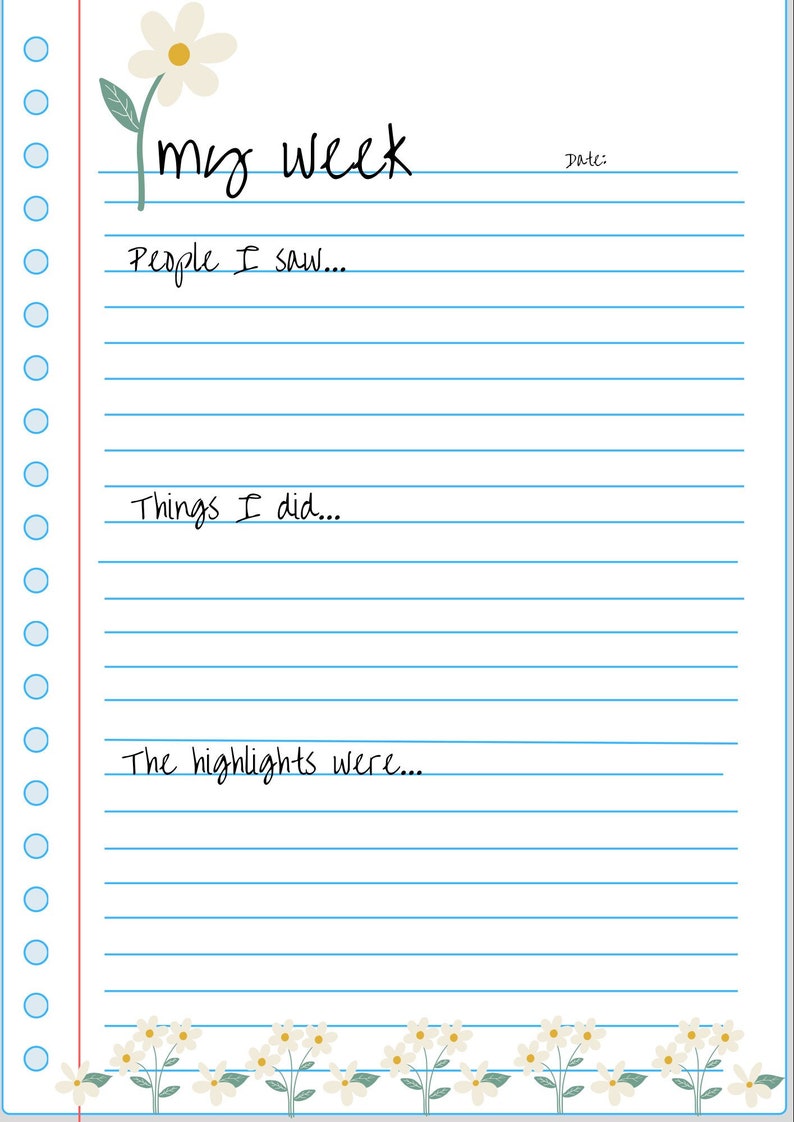 my week
Date:
People I saw...
Things I did...
The highlights were...